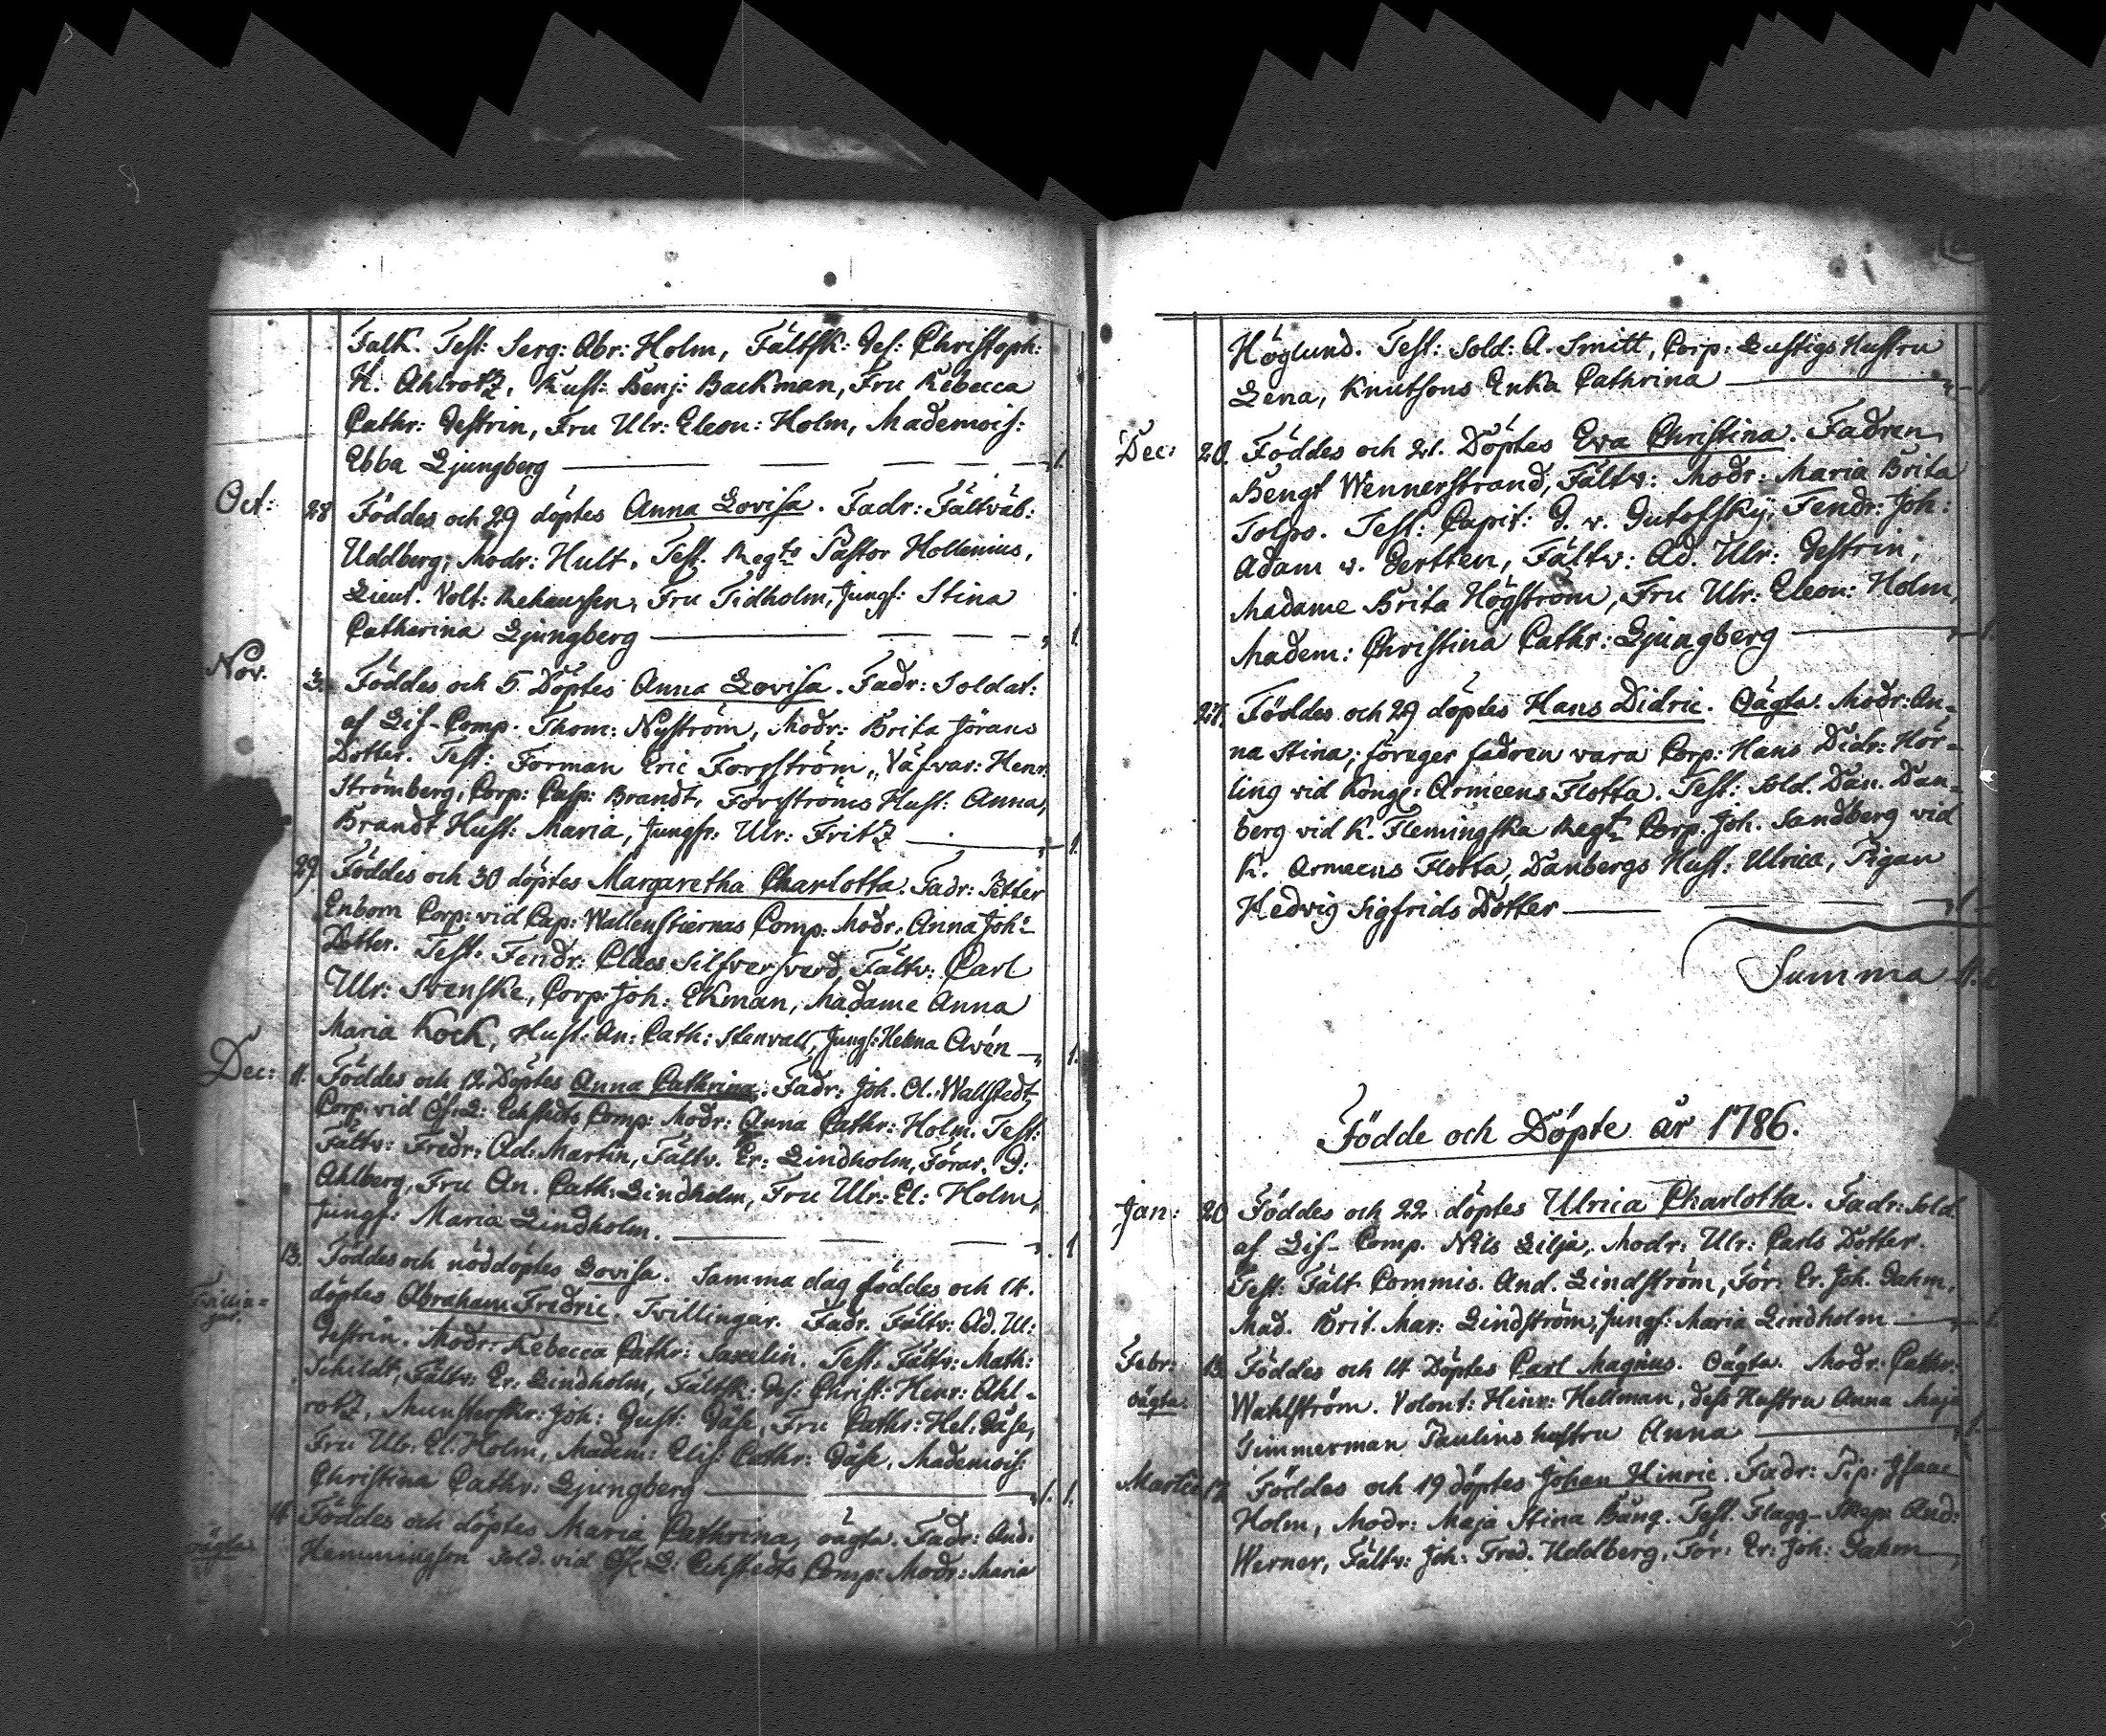 Falk. Test: Serg: Abr: Holm, Fältsk: Ges: Christoph:
H. Ahlrotz, Kust: Benj: Backman, Fru Rebecca
Cathr: Gestrin, Fru Ulr: Eleon: Holm, Mademois:
Ebba Ljungberg — — — — 1.
Oct: 28 Föddes och 29 döptes Anna Lovisa. Fadr: Fältväb:
Uddberg, Modr: Hult. Test. Regts Pastor Hollenius,
Lieut. Volt: Rehausen, Fru Tidholm, Jungf: Stina
Catharina Ljungberg — — — — 1.
Nov. 3. Föddes och 5. Döptes Anna Lovisa. Fadr: Soldat:
af Lif-Comp. Thom: Nyström, Modr: Brita Jörans
Dotter. Test: Förman Eric Forsström, Väfvar: Henr.
Strömberg, Corp: Casp: Brandt, Forsströms Hust: Anna,
Brandt Hust: Maria, Jungfr: Ulr: Fritz — 1.
29 Föddes och 30 döptes Margaretha Charlotta. Fadr: Petter
Enbom Corp: vid Cap: Wallenstiernas Comp: Modr: Anna Joh:
Dotter. Test. Fendr: Claes Silfversverd, Fältv: Carl
Ulr: Svenske, Corp: Joh: Ekman, Madame Anna
Maria Kock, Hust: An: Cath: Stenvall, Jungf: Helena Avén — 1.
Dec: 11. Föddes och 12 Döptes Anna Cathrina. Fadr: Joh. Ol. Wallstedt,
Corp: vid Öf: L: Eckstedts Comp: Modr: Anna Cathr: Holm. Test:
Fältv: Fredr: Ad: Martin, Fältv. Er: Lindholm, Förar. D:
Ahlberg, Fru An. Cath: Lindholm, Fru Ulr: El: Holm,
Jungf: Maria Lindholm. — — — 1
13. Föddes och nöddöptes Lovisa. Samma dag föddes och 14.
Tvillin=
gar. döptes Abraham Fredric, Tvillingar. Fadr. Fältv: Ad. Ul:
Gestrin. Modr: Rebecca Cathr: Saxelin. Test: Fältv: Math:
Schildt, Fältv: Er: Lindholm, Fältsk: Ges: Christ: Henr: Ahl-
rotz, Munsterskr: Joh: Gust: Gåse, Fru Cathr: Hel: Gåse,
Fru Ulr: El: Holm, Madem: Elis: Cathr: Gåse, Mademois:
Christina Cathr: Ljungberg — — 1. 1.
14 Föddes och döptes Maria Cathrina, oägta. Fadr: And:
oägta. Hemmingson Sold. vid Öf: L: Eckstedts Comp: Modr: Maria
Höglund. Test: Sold: A. Smitt, Corp: Lustigs Hustru
Lena, Knutsons Enka Cathrina —
Dec: 20. Föddes och 21. Döptes Eva Christina. Fadren
Bengt Wennerstrand, Fältv: Modr: Maria Brita
Tolpo. Test: Capit: G. v. Gutofsky, Fendr: Joh:
Adam v. Gertten, Fältv: Ad. Ulr: Gestrin,
Madame Brita Högström, Fru Ulr: Eleon: Holm,
Madem: Christina Cathr: Ljungberg — 1.
27. Föddes och 29 döptes Hans Didric. Oägta. Modr: An-
na Stina; föreger fadren vara Corp: Hans Didr: Hör-
ling vid Kongl: Armeens Flotta. Test: Sold. Dan. Dan-
berg vid K. Flemingska Regt Corp. Joh. Sandberg vid
K. Armeens Flotta, Danbergs Hust: Ulrica, Pigan
Hedvig Sigfrids Dotter — — — 1
Summa
Födde och Döpte år 1786.
Jan: 20 Föddes och 22 döptes Ulrica Charlotta. Fadr: Sold.
af Lif-Comp. Nils Lilja, Modr: Ulr: Carls Dotter.
Test: Fält Commis. And. Lindström, För: Er. Joh. Dahm,
Mad. Brit. Mar: Lindström, Jungf: Maria Lindholm — 1.
Febr: 13. Föddes och 14 Döptes Carl Magnus. Oägta. Modr: Cathr:
oägta. Wahlström. Volont: Heinr: Hellman, dess Hustru Anna Maja
Timmerman Paulins hustru Anna — 1.
Martii 17. Föddes och 19 döptes Johan Hinric. Fadr: Pip: Isaac
Holm, Modr: Maja Stina Bång. Test. Flagg-Skep: And:
Werner, Fältv: Joh: Fred. Uddberg, För: Er: Joh: Dahm